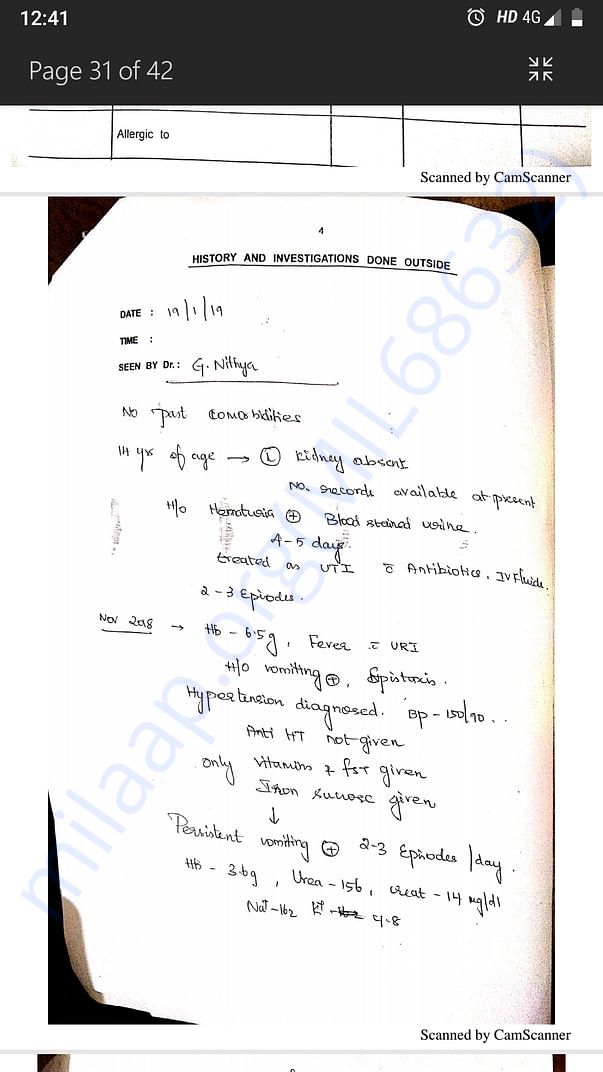 12:41
HD 4G
Page 31 of 42
Allergic to
Scanned by CamScanner
4
HISTORY AND INVESTIGATIONS DONE OUTSIDE
DATE : 19/1/19
TIME :
SEEN BY Dr.: G. Nithya
No past comorbidities
14 yrs of age → Ⓛ kidney absent
No. records available at present
H/o Hematuria ⊕ Blood stained urine.
4-5 days.
treated as UTI c̄ Antibiotics, IV Fluids.
2-3 Episodes.
Nov 2018 → Hb - 6.5g, Fever c̄ URI
H/o vomiting ⊕, Epistaxis.
Hypertension diagnosed. BP - 150/90..
Anti HT not given
only Vitamins & given
Iron sucrose given
↓
Persistent vomiting ⊕ 2-3 Episodes/day.
HB - 3.6g, Urea - 156, creat - 14 mg/dl
Na+ - 162 K+ - 4.8
Scanned by CamScanner
milaap.org(MIL68632)